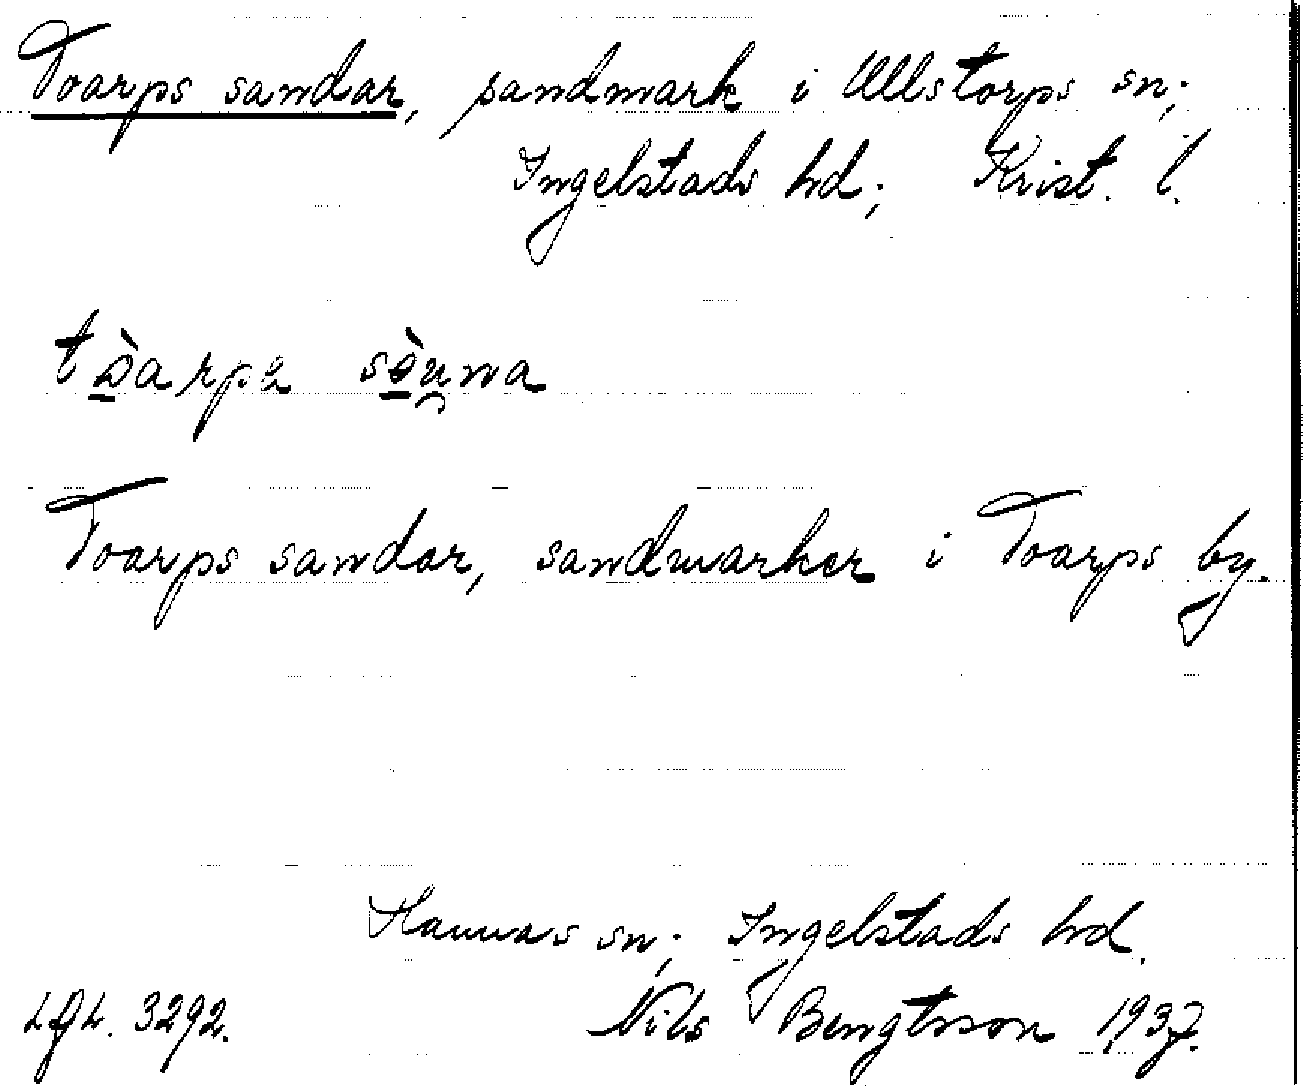 Toarps sandar, sandmark i Ullstorps sn;
Ingelstads hd; Krist. l.
Toarps sandar, sandmarker i Toarps by.
Hannas sn; Ingelstads hd.
LGL. 3292. Nils Bengtsson 1937.